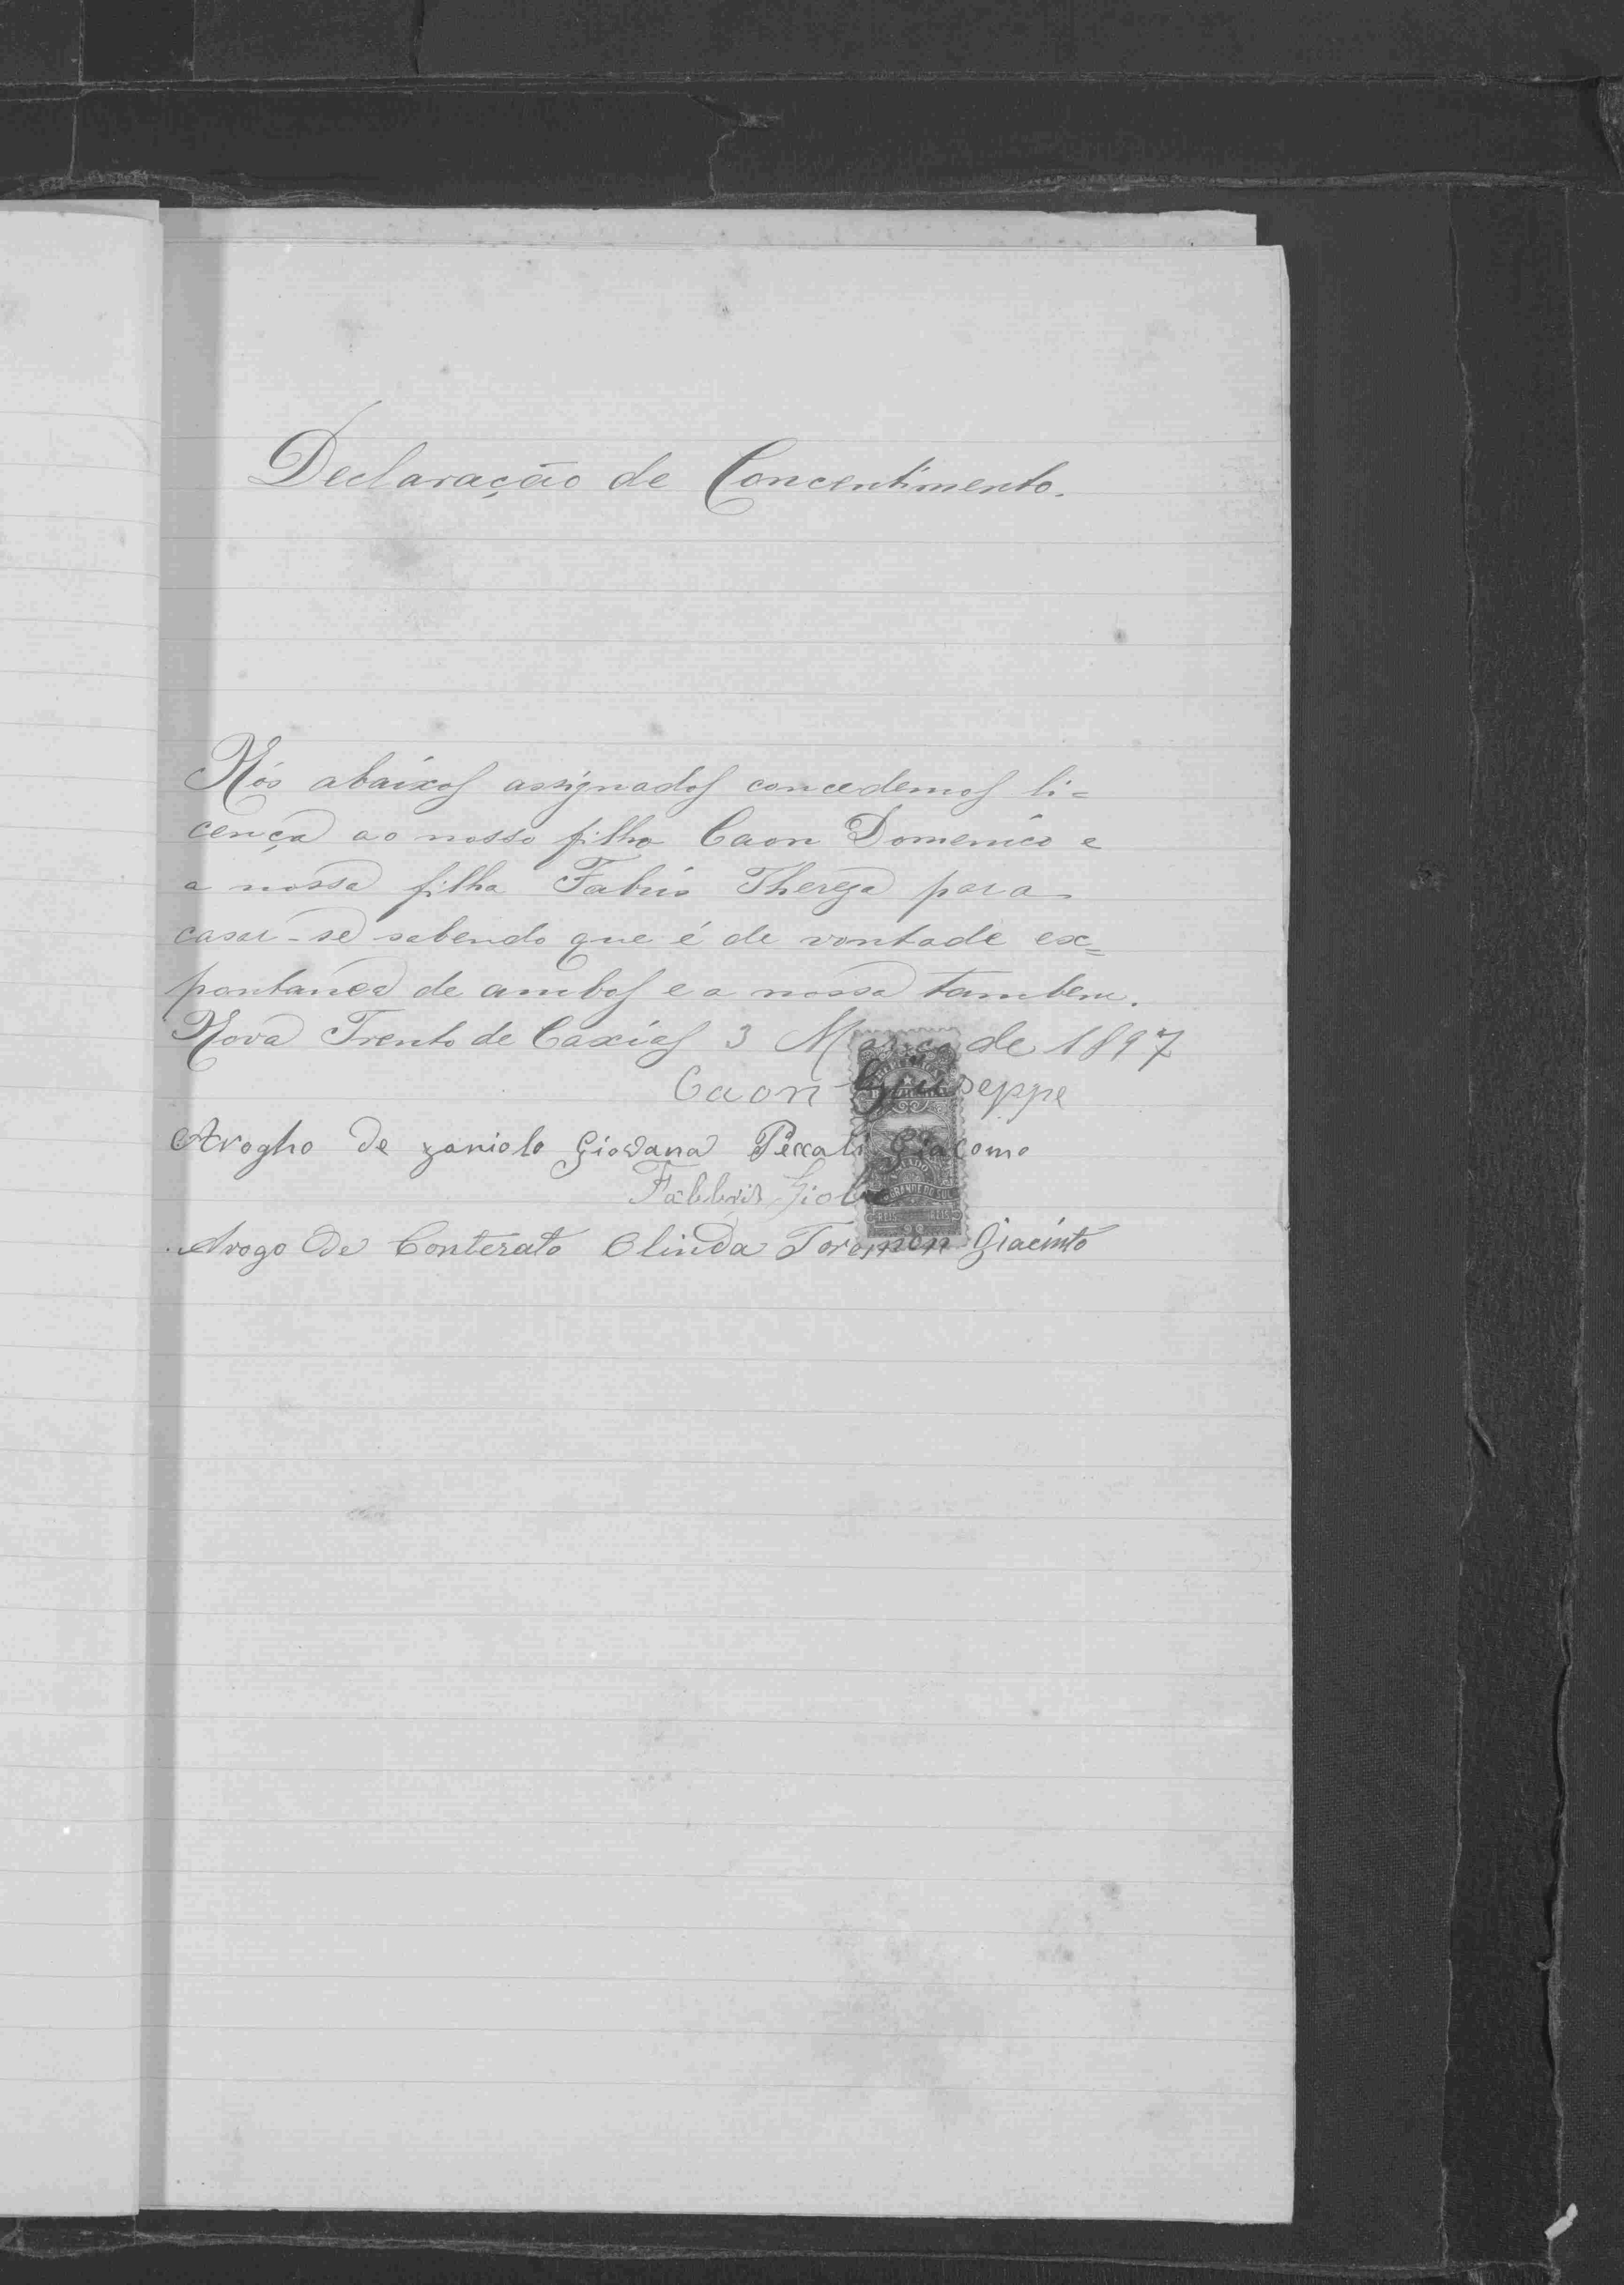 Declaração de Concentimento.
Nós abaixos assignados concedemos li=
cença ao nosso filho Caon Domenico e
a nossa filha Fabris Thereza para
casar-se sabendo que é de vontade ex=
pontanea de ambos e a nossa tambem.
Nova Trento de Caxias 3 Março de 1897
Caon Giuseppe
Arogho de zaniolo Giovana Peccati Giacomo
Fabbris
Arogo De Conterato Olinda Giacinto
GRANDE DO SUL
REIS REIS